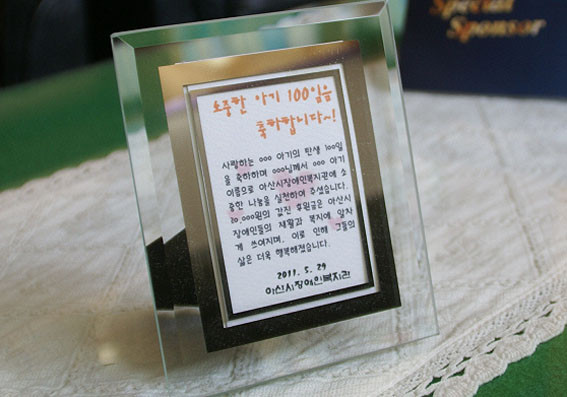 Special
Sponsor
소중한 아기 100일을
축하합니다~!
사랑하는 ooo 아기의 탄생 100일
을 축하하며 ooo님께서 ooo 아기
이름으로 아산시장애인복지관에 소
중한 나눔을 실천하여 주셨습니다.
20,000원의 값진 후원금은 아산시
장애인들의 재활과 복지에 알차
게 쓰여지며, 이로 인해 그들의
삶은 더욱 행복해졌습니다.
2011. 5. 29
아산시장애인복지관